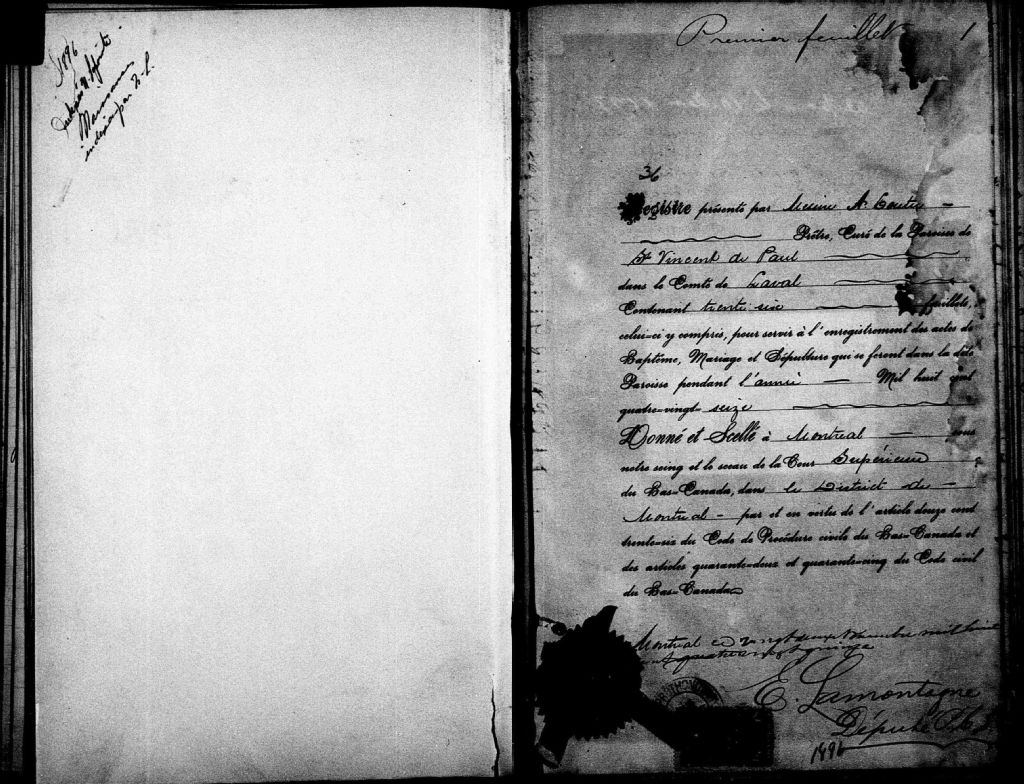 1896
Premier feuillet 1
36
Registre présenté par Messire N.
Prêtre, Curé de la Paroisse de
St Vincent de Paul
dans le Comté de Laval
Contenant trente-six feuillets,
celui-ci y compris, pour servir à l'enregistrement des actes de
Baptême, Mariage et Sépulture qui se feront dans la dite
Paroisse pendant l'année Mil huit cent
quatre-vingt-seize
Donné et Scellé à Montréal sous
notre seing et le sceau de la Cour Supérieure
du Bas-Canada, dans le District de
Montréal par et en vertu de l'article douze cent
trente-six du Code de Procédure civile du Bas-Canada et
des articles quarante-deux et quarante-cinq du Code civil
du Bas-Canada.
Montréal ce vingt deux mil huit
cent quatre vingt quinze
E. Lamontagne
Député P.C.S.
1896